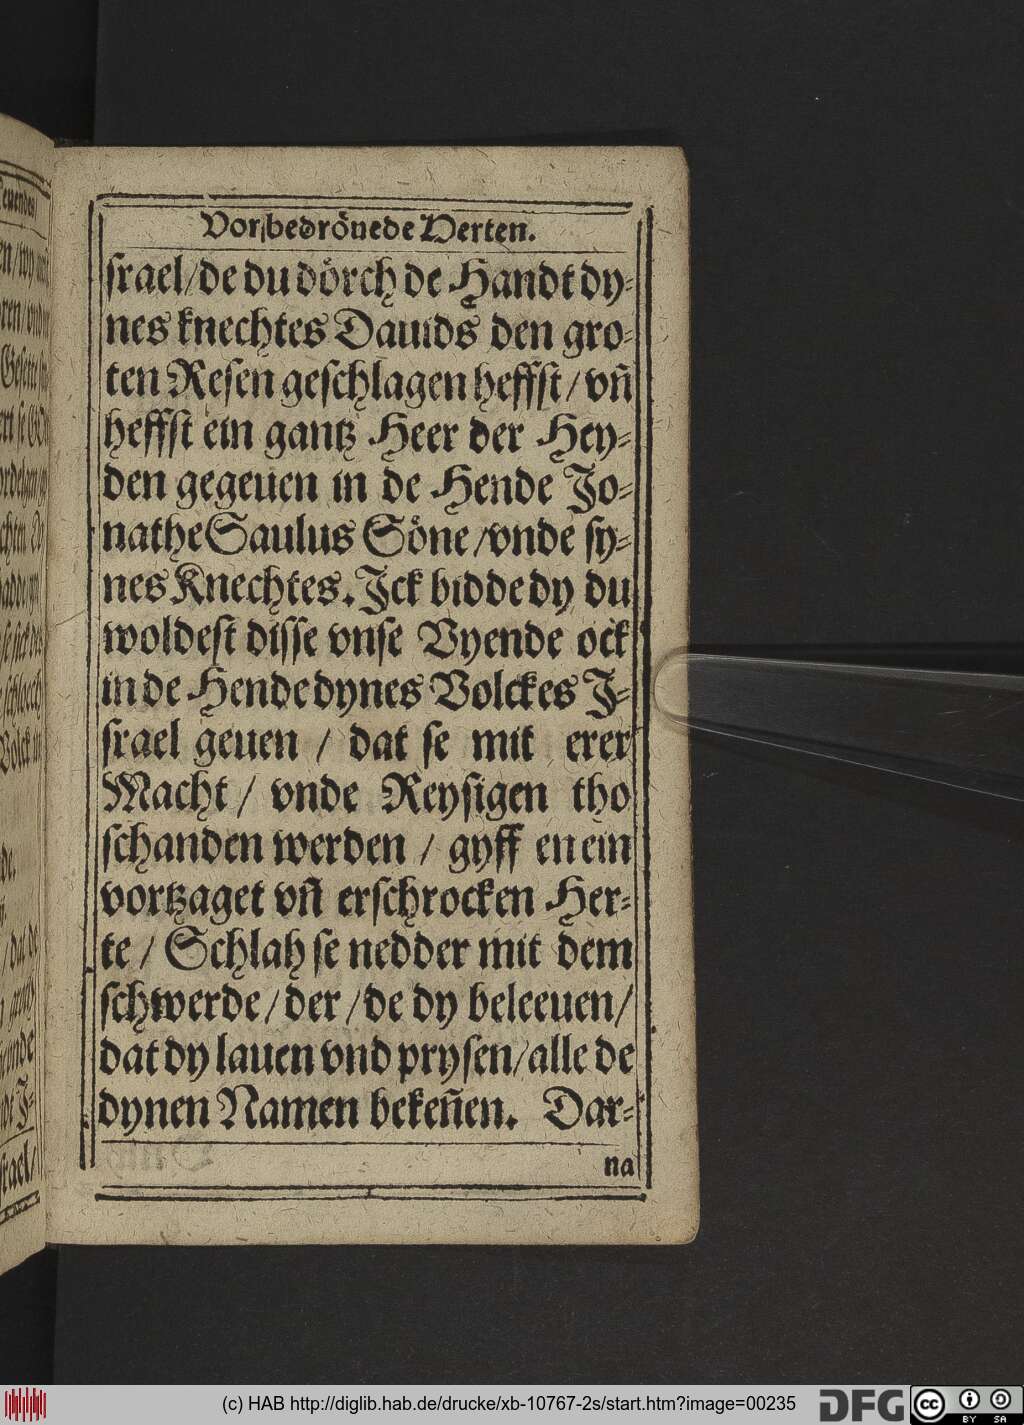 Vor bedrönede Herten.
ſrael/de du dörch de Handt dy-
nes knechtes Dauids den gro-
ten Reſen geſchlagen heffſt/ vn̄
heffſt ein gantz Heer der Hey-
den gegeuen in de Hende Jo-
nathe Saulus Söne/vnde ſy-
nes Knechtes. Jck bidde dy du
woldeſt diſſe vnſe Vyende ock
in de Hende dynes Volckes J-
ſrael geuen / dat ſe mit erer
Macht/ vnde Reyſigen tho
ſchanden werden / gyff en ein
vortzaget vn̄ erſchrocken Her-
te/ Schlah ſe nedder mit dem
ſchwerde/ der/de dy beleeuen/
dat dy lauen vnd pryſen/alle de
dynen Namen beken̄en. Dar-
na
(c) HAB http://diglib.hab.de/drucke/xb-10767-2s/start.htm?image=00235
DFG
cc BY SA